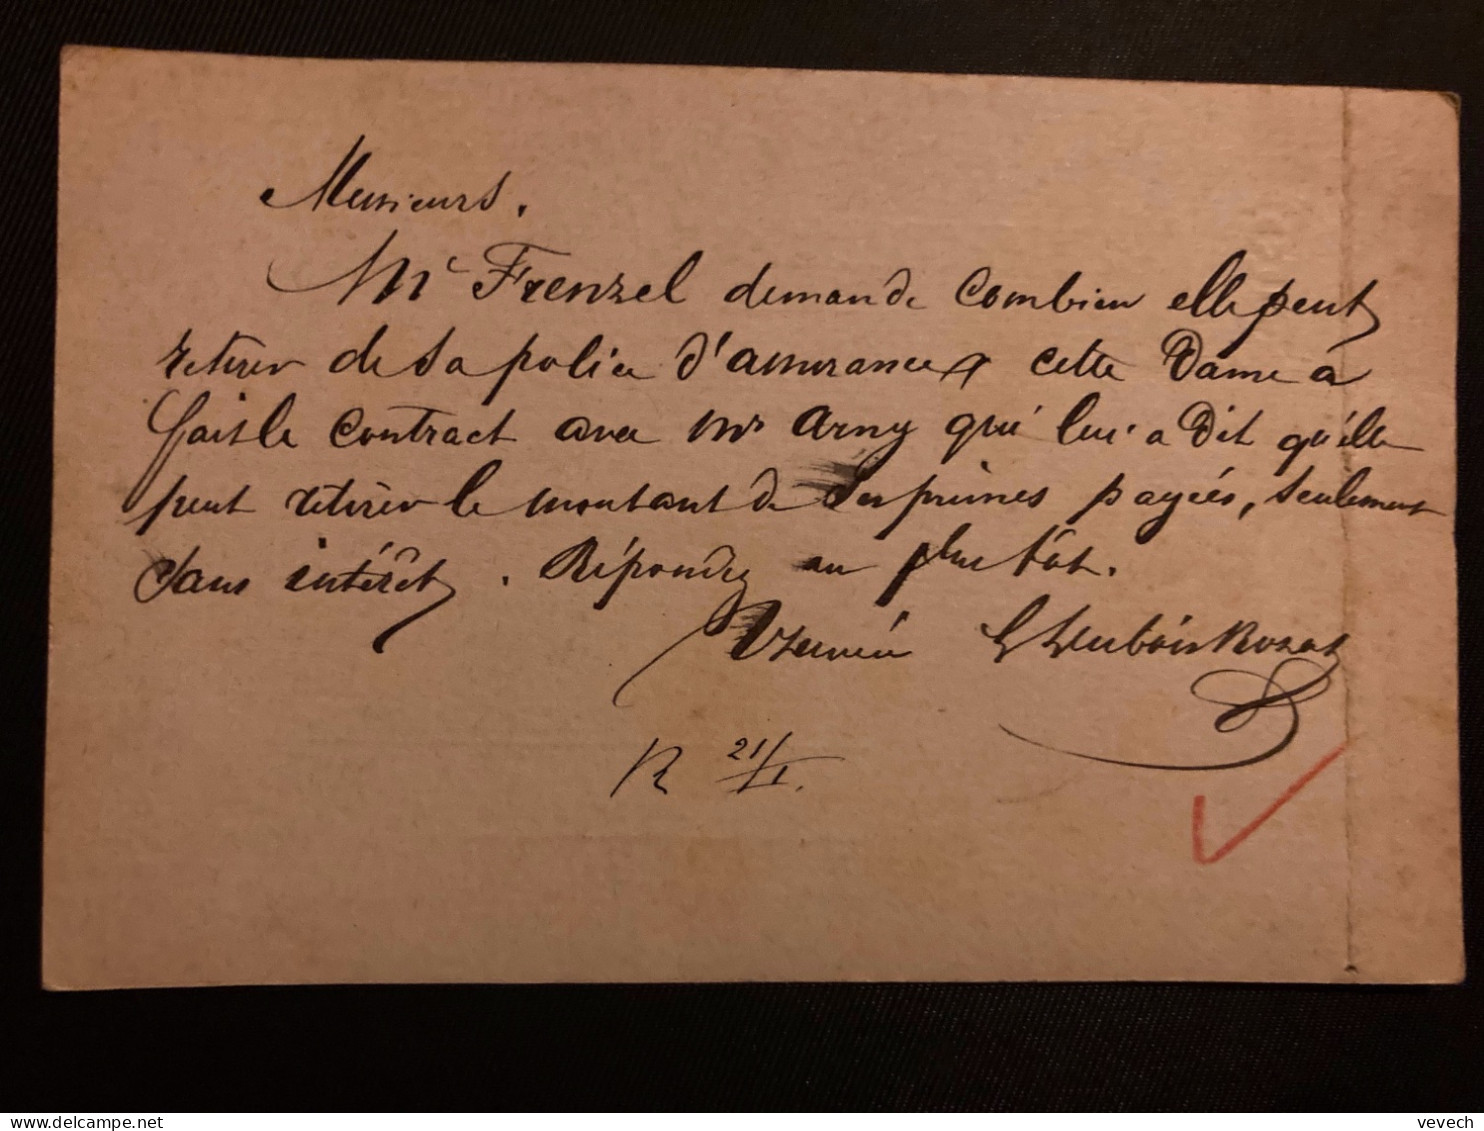 Messieurs.
Mᶜ Frenzel demande combien elle peut
retirer de sa police d'assurance, cette Dame à
fait le contract avec Mr Arny qui lui a dit qu'elle
peut retirer le montant de ses primes payées, seulement
sans intérêt. Répondez au plus tôt.
Dubois Rozat
R 21/1.
vevech